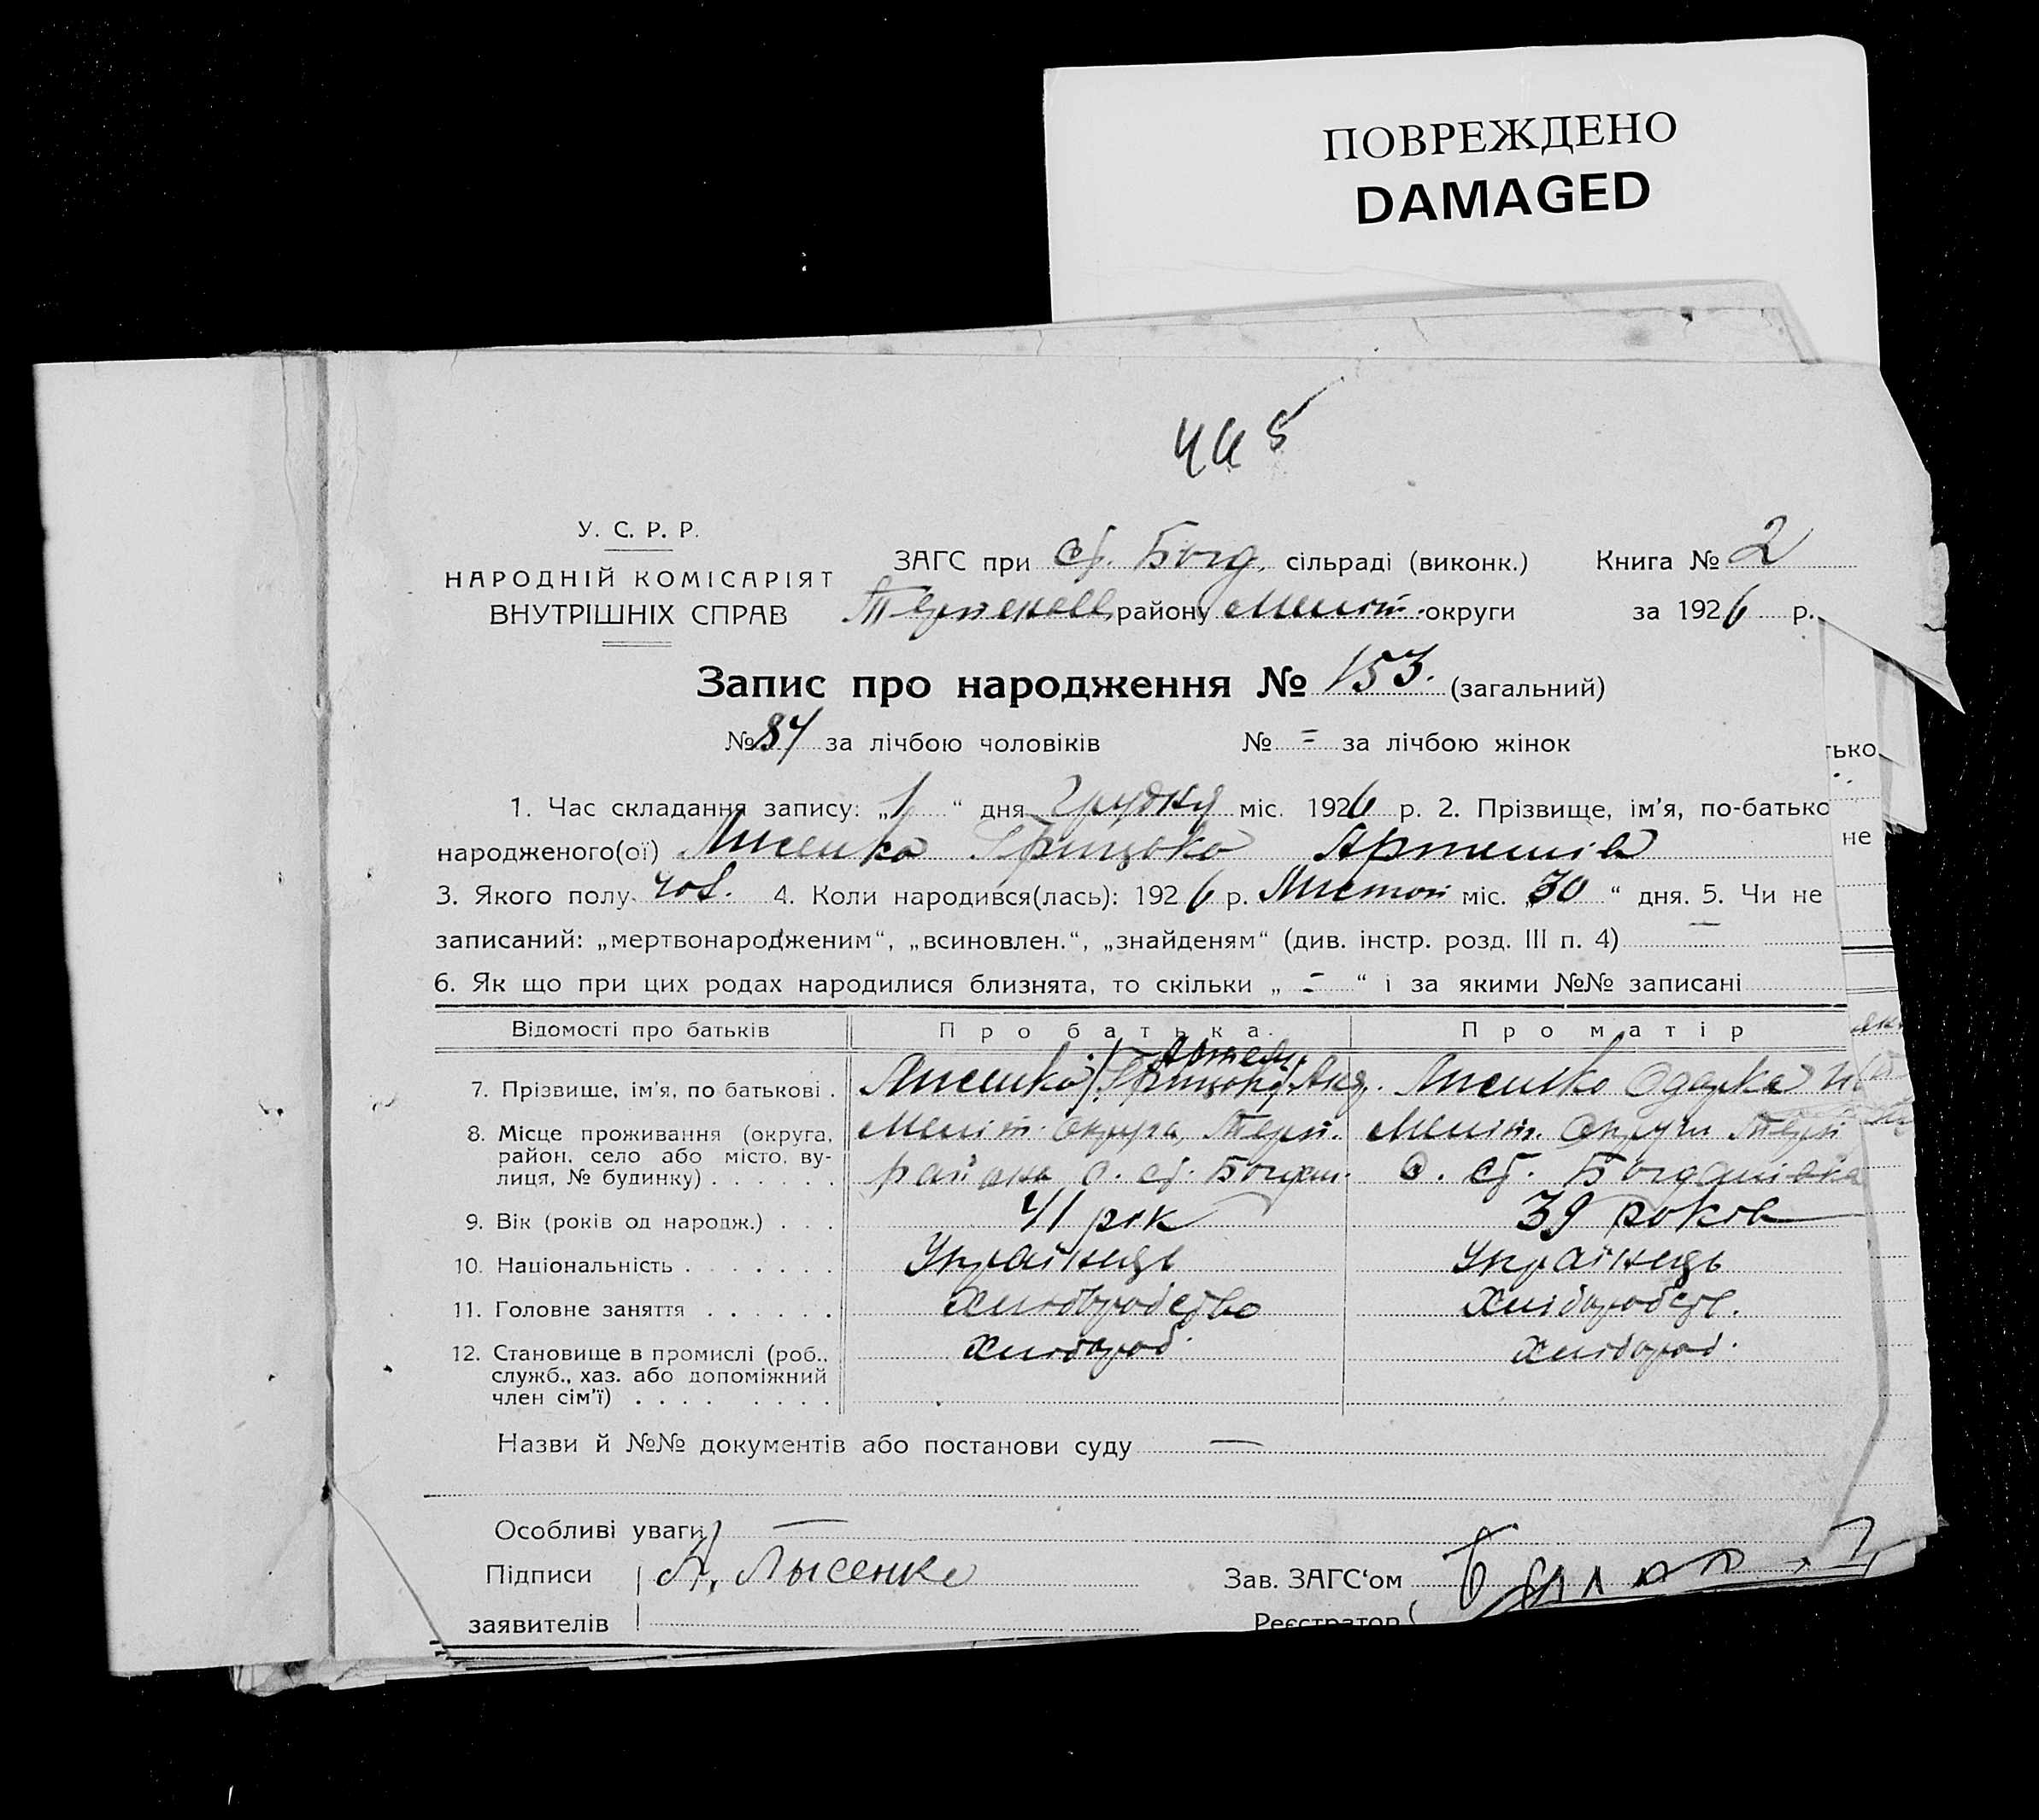 ПОВРЕЖДЕНО
DAMAGED
У. С. Р. Р.
НАРОДНІЙ КОМІСАРІЯТ
ВНУТРІШНІХ СПРАВ
ЗАГС при ст. Богд. сільраді (виконк.) Книга № 2
району Меліт. округи за 1926 р.
Запис про народження № 153. (загальний)
№ 84 за лічбою чоловіків № = за лічбою жінок
1. Час складання запису: „1“ дня Грудня міс. 1926 р. 2. Прізвище, ім’я, по-батько
народженого(ої) Лисенко Грицько Артемів
3. Якого полу чол. 4. Коли народився(лась): 1926 р. Листоп міс. „30“ дня. 5. Чи не
записаний: „мертвонародженим“, „всиновлен.“, „знайденям“ (див. інстр. розд. III п. 4) —
6. Як що при цих родах народилися близнята, то скільки „ = “ і за якими №№ записані
Відомості про батьків Про батька. Про матір
7. Прізвище, ім’я, по батькові . Лисенко Артем Лисенко Одарка
8. Місце проживання (округа, район, село або місто, ву-лиця, № будинку) . . . . . . Меліт. округа, Терп. Меліт. Округи Терп
района с. ст. Богдан. с. ст. Богданівка
9. Вік (років од народж.) . . . 41 рік 39 років
10. Національність . . . . . . . Українець Українець
11. Головне заняття . . . . . . Хліборобство Хліборобств.
12. Становище в промислі (роб., служб., хаз. або допоміжний член сім’ї) . . . . . . . . Хлібороб. хлібороб.
Назви й №№ документів або постанови суду —
Особливі уваги —
Підписи А. Лысенко Зав. ЗАГС‘ом
заявителів Реєстратор
тько
не